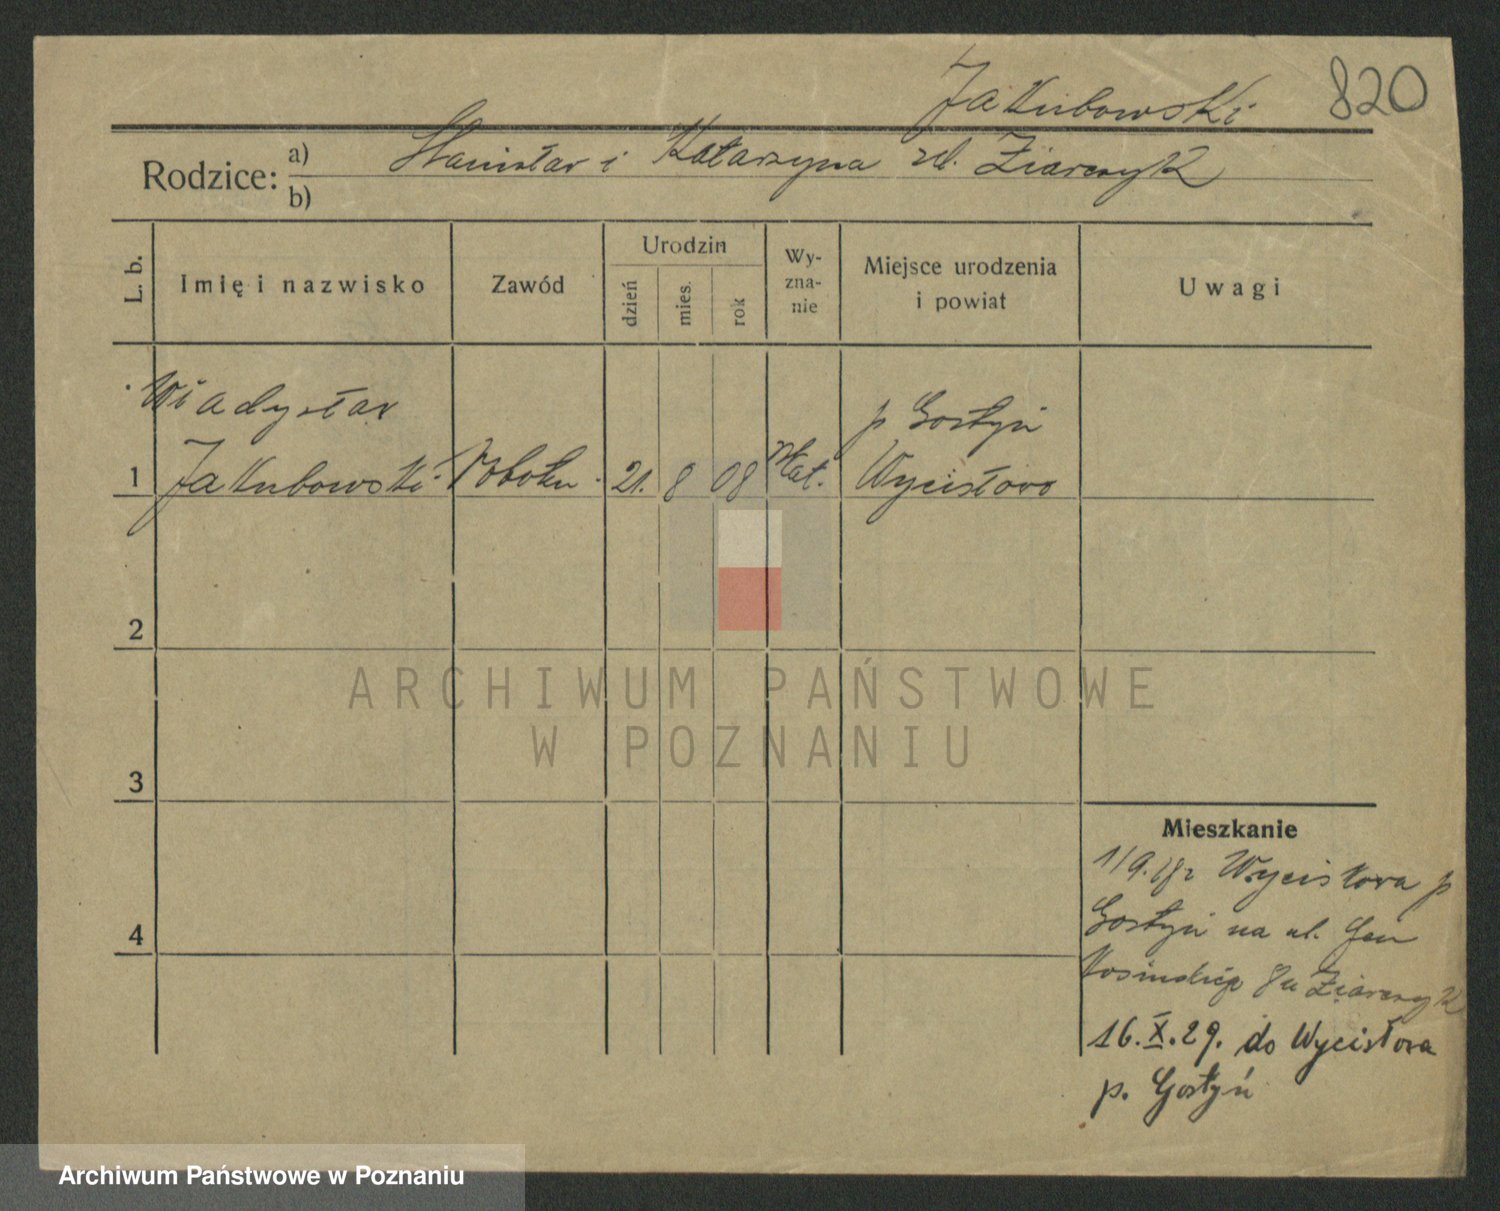 Jakubowski 820
Rodzice: a) Stanisław i Katarzyna zd. Ziarczyk
b)
L. b. Imię i nazwisko Zawód Urodzin dzień mies. rok Wy-zna-nie Miejsce urodzenia i powiat Uwagi
Władysław p Gostyń
1 Jakubowski Robotn. 21. 8 08 kat. Wycisłowo
2
ARCHIWUM PAŃSTWOWE
W POZNANIU
3
Mieszkanie
1/9.28 z Wycisłowa p
Gostyń na ul. Gen
4
Kosińskiego 8 u Ziarczyk
16.X.29. do Wycisłowa
p. Gostyń
Archiwum Państwowe w Poznaniu